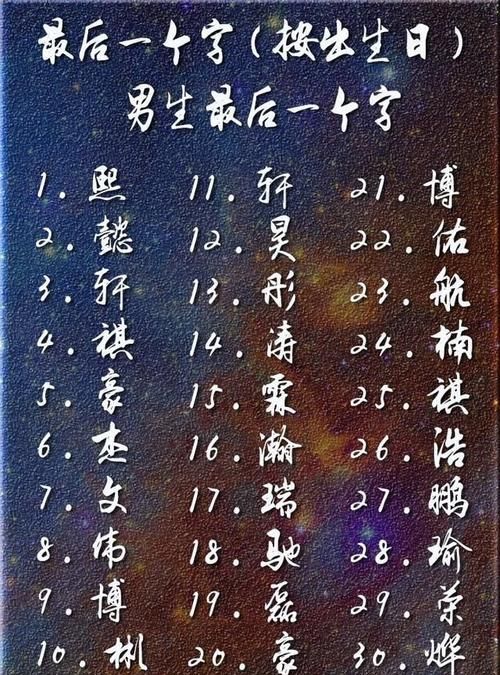 最后一个字(按出生日)
男生最后一个字
1.熙 11.轩 21.博
2.懿 12.昊 22.佑
3.轩 13.彤 23.航
4.祺 14.涛 24.楠
5.豪 15.霖 25.祺
6.杰 16.瀚 26.浩
7.文 17.瑞 27.鹏
8.伟 18.驰 28.瑜
9.博 19.磊 29.荣
10.彬 20.豪 30.烨